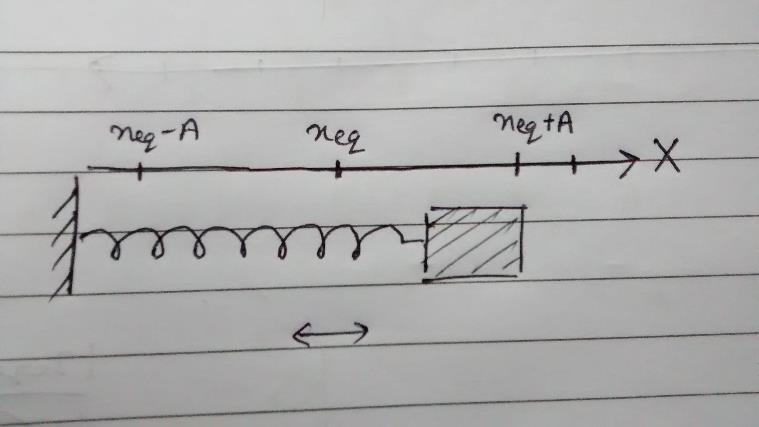 xeq-A xeq xeq+A
X